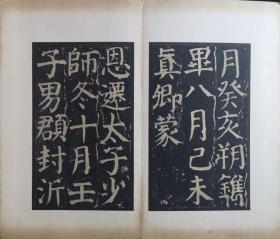 月癸亥朔鐫
畢八月己未
真卿蒙
恩遷太子少
師冬十月壬
子男頵封沂